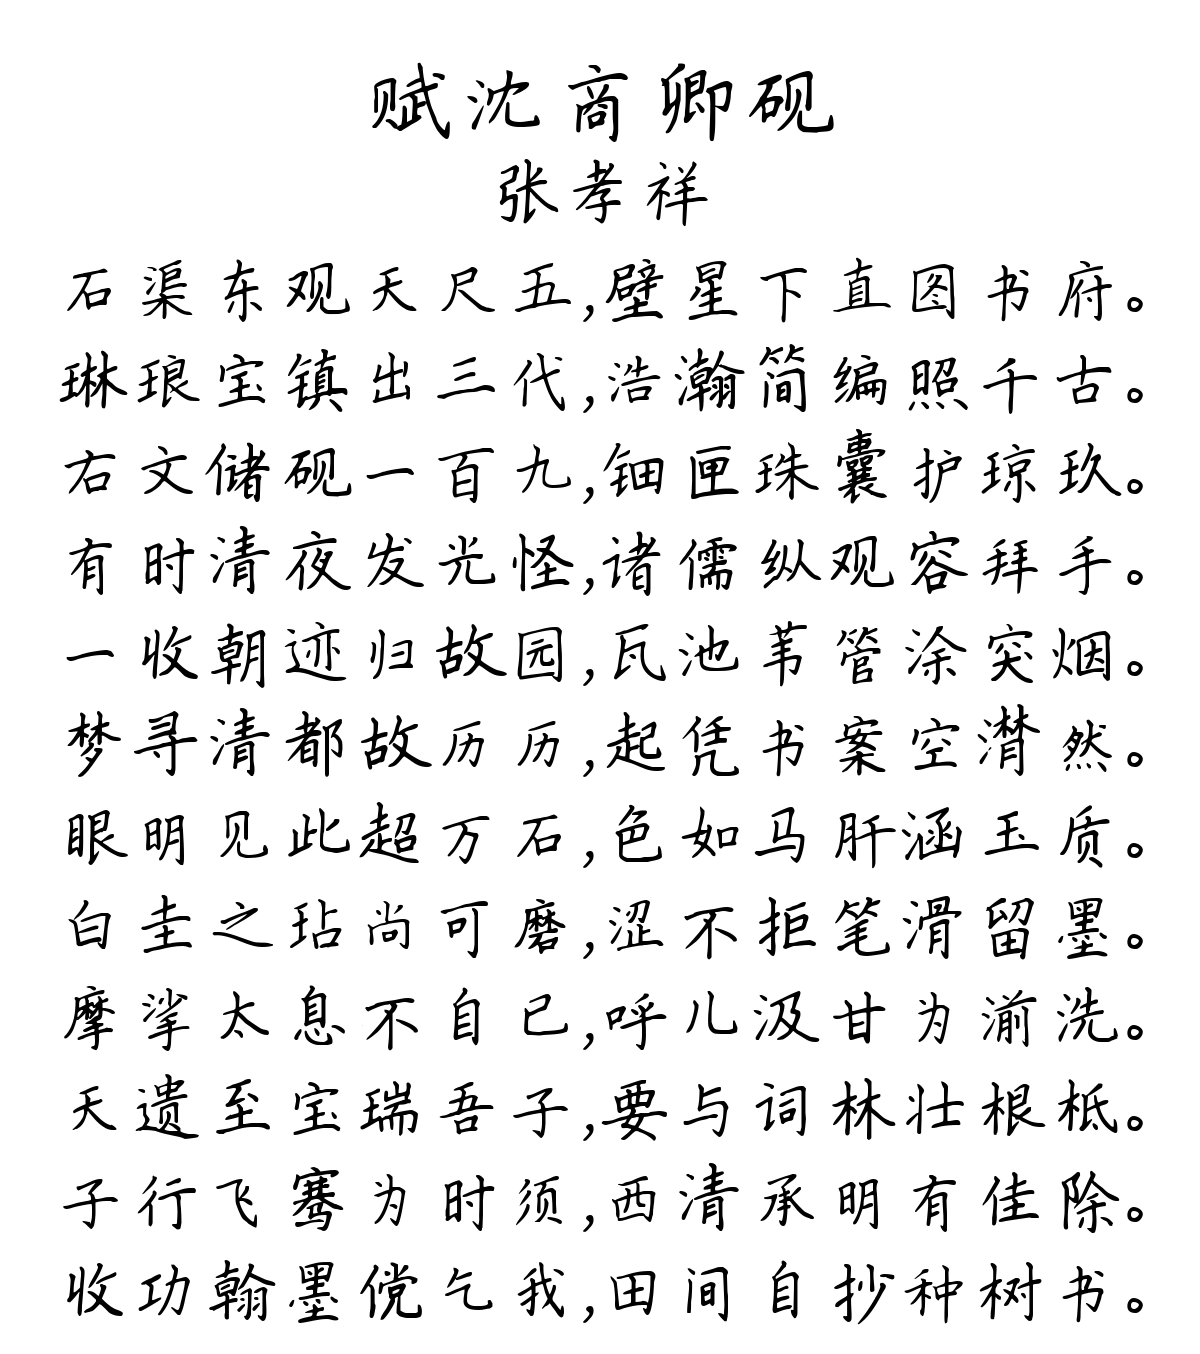 赋沈商卿砚
张孝祥
石渠东观天尺五,壁星下直图书府。
琳琅宝镇出三代,浩瀚简编照千古。
右文储砚一百九,钿匣珠囊护琼玖。
有时清夜发光怪,诸儒纵观容拜手。
一收朝迹归故园,瓦池苇管涂突烟。
梦寻清都故历历,起凭书案空潸然。
眼明见此超万石,色如马肝涵玉质。
白圭之玷尚可磨,涩不拒笔滑留墨。
摩挲太息不自已,呼儿汲甘为湔洗。
天遗至宝瑞吾子,要与词林壮根柢。
子行飞骞为时须,西清承明有佳除。
收功翰墨傥乞我,田间自抄种树书。